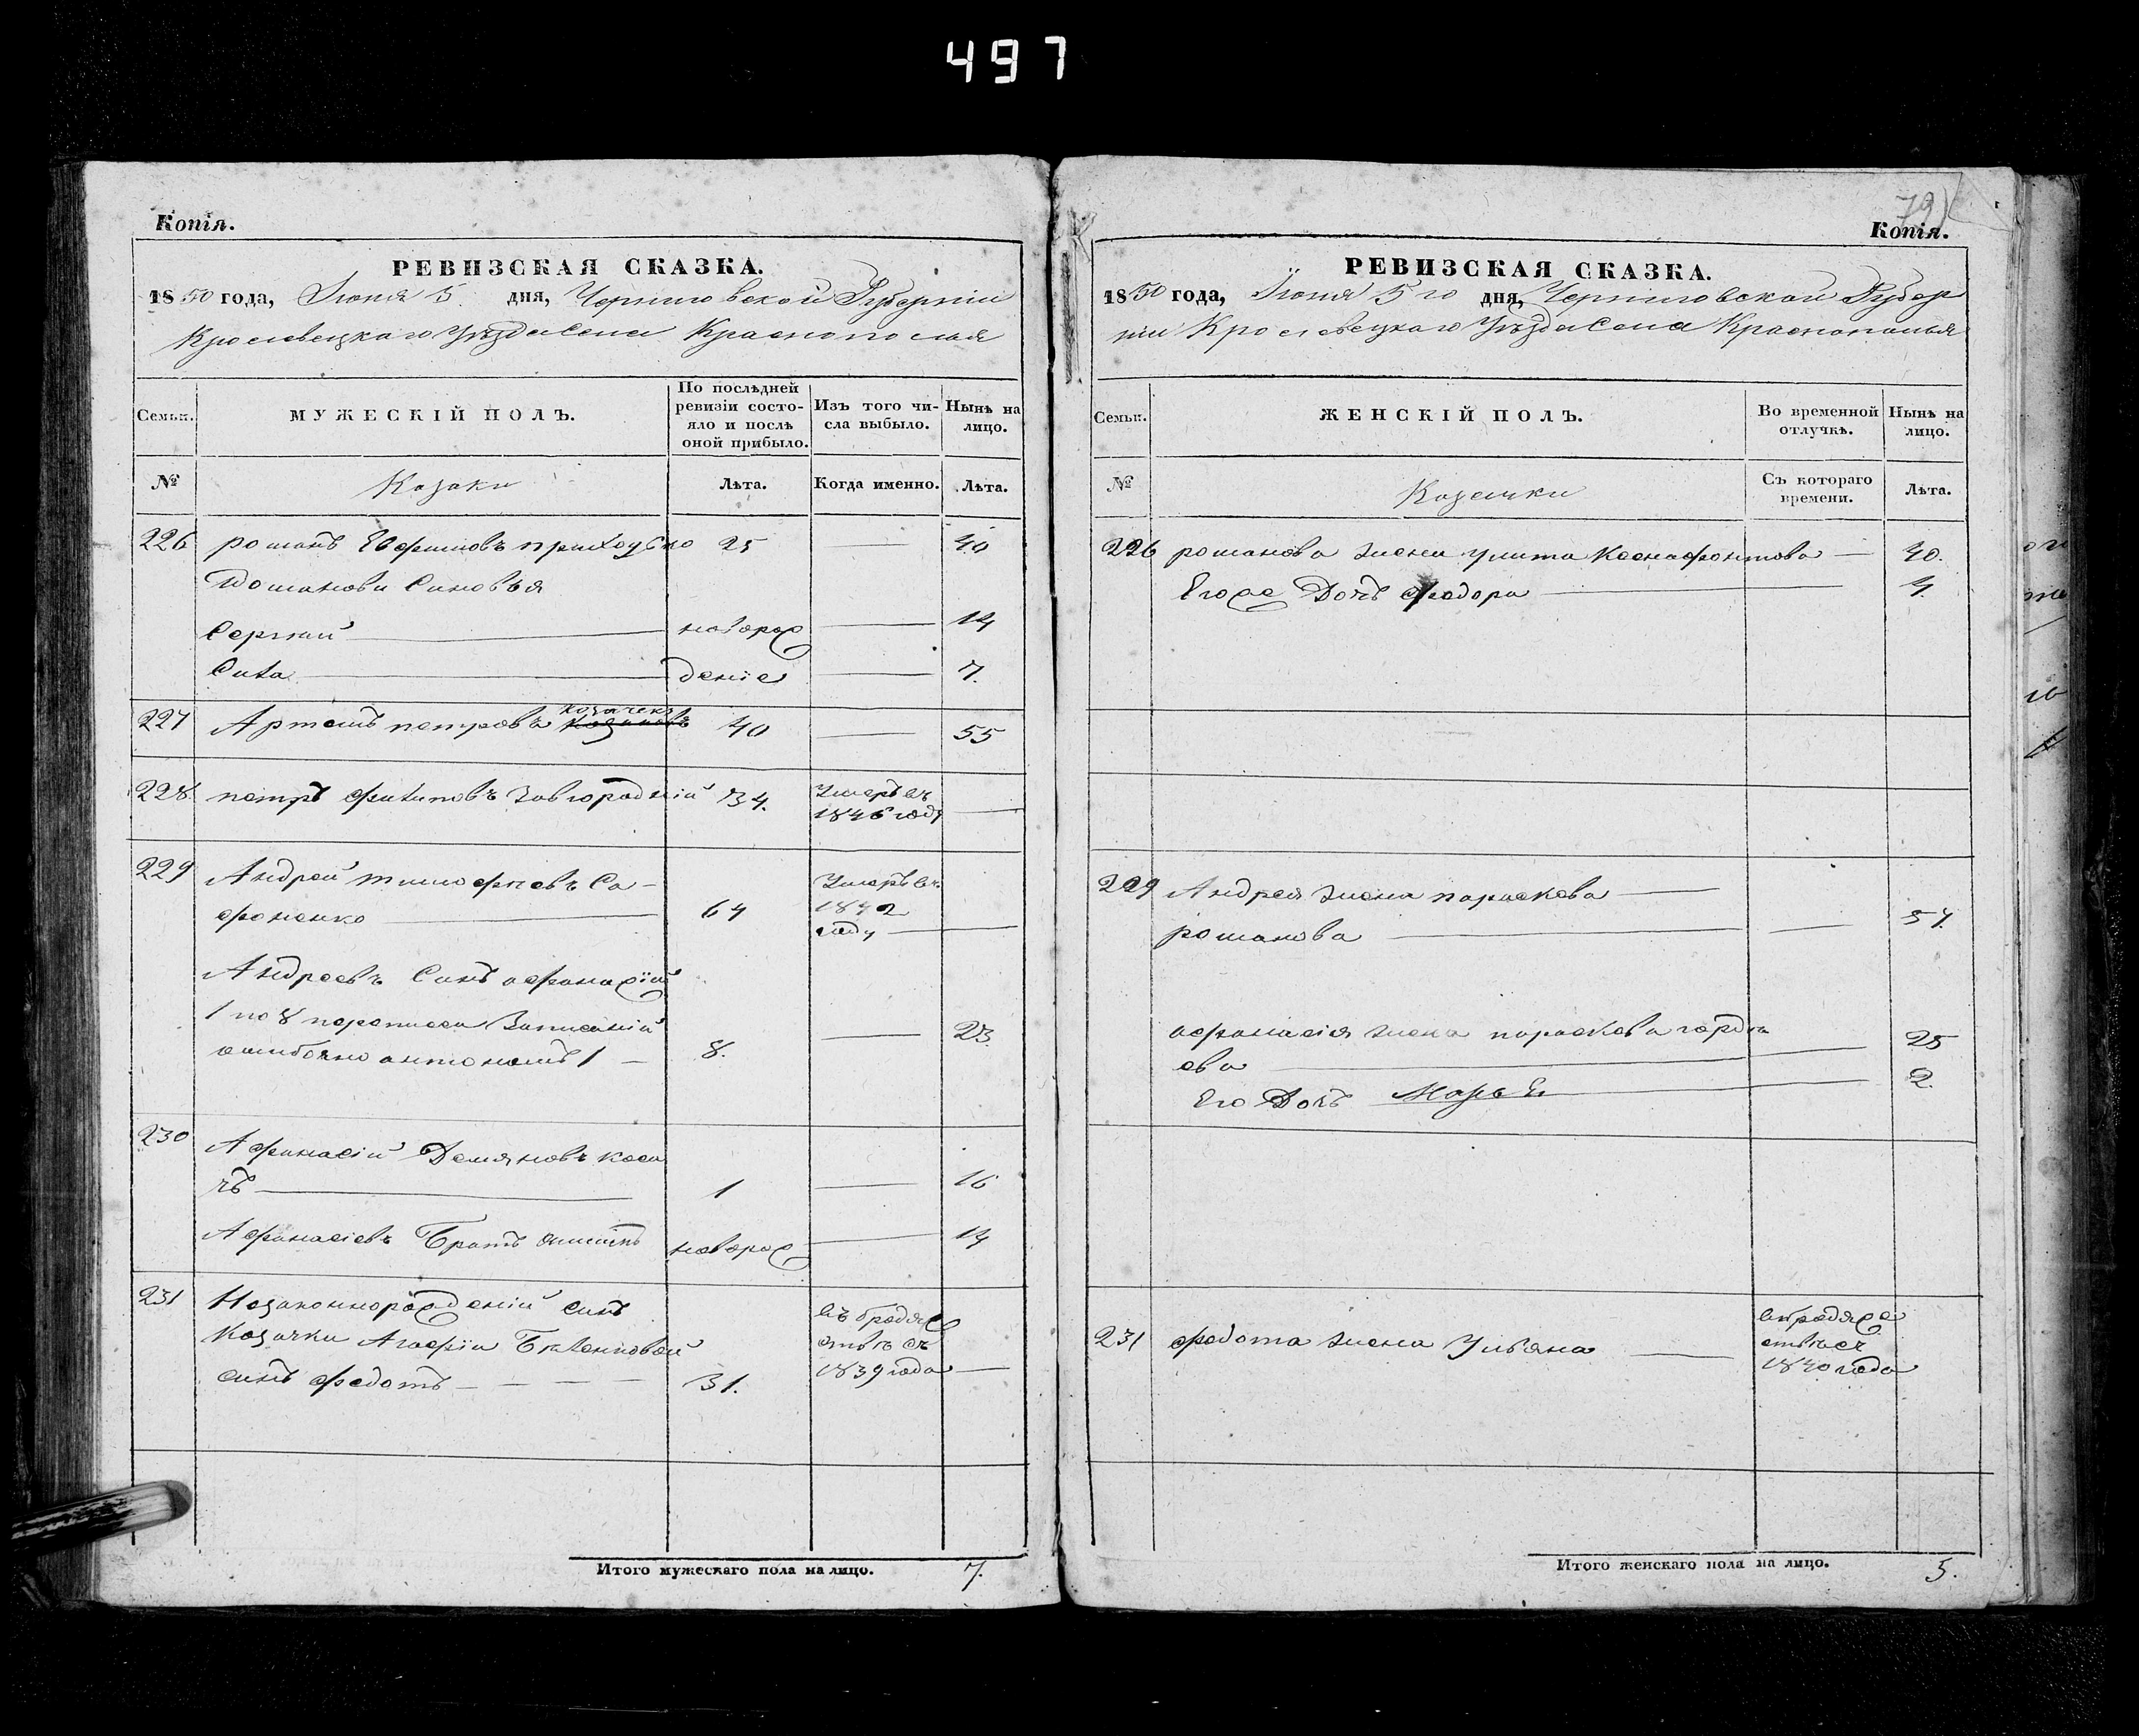 497
Копія.
РЕВИЗСКАЯ СКАЗКА.
1850 года, Іюня 5. дня, Черниговской Губерніи
Кролевецкаго Уѣзда Села Краснополья
Семьи.
МУЖЕСКІЙ ПОЛЪ.
По послѣдней ревизіи состояло и послѣ оной прибыло.
Изъ того числа выбыло.
Нынѣ на лицо.
№
Козаки
Лѣта.
Когда именно.
Лѣта.
226 романъ Евфимовъ приходько 25 — 40
Романови Синовья
Сергѣй — новорож — 14
Сила — деніе — 7.
Козачекъ
227 Артемъ петровъ 40 — 55
228. петръ филиповъ Завгородній 34. Умеръ въ
1846 году —
229 Андрей тимофѣевъ Са- Умеръ въ
фоненко — 64 1842
году —
Андреевъ Синъ афанасій
/ по 8 переписи Записаній
ошибочно антономъ / — 8. — 23.
230 Афанасій Демяновъ коса
чъ — 1 — 16
Афанасіевъ Братъ новорож — 14
231 Незаконнорожденій синъ въ бродяж
козачки Агафіи ствѣ съ
синъ федотъ — — — — 31. 1839 года —
Итого мужескаго пола на лицо. 7.
79
Копія.
РЕВИЗСКАЯ СКАЗКА.
1850 года, Іюня 5го дня, Черниговской Губер
ніи Кролевецкаго Уѣзда Села Краснополья
Семьи.
ЖЕНСКІЙ ПОЛЪ.
Во временной отлучкѣ.
Нынѣ на лицо.
№
Козачки
Съ котораго времени.
Лѣта.
226 романова жена улита Ксенафонтова — 40.
Егоже Дочь федора — 4.
229 Андрея жена параскева —
романова — — 57.
афанасія жена параскева горде
ева — 25
Его Дочь Марья — 2.
231 федота жена Ульяна — вбродяже
ствѣ съ
1840 года
Итого женскаго пола на лицо. 5.